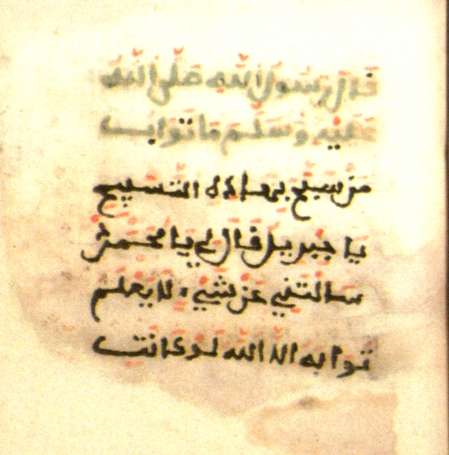 قال رسول الله صلى الله
عليه وسلم ما ثواب
من سبح بهاذه التسبيح
يا جبريل قال لي يا محمد
سالتني عن شيء لا يعلم
ثوابه الا الله لو كانت